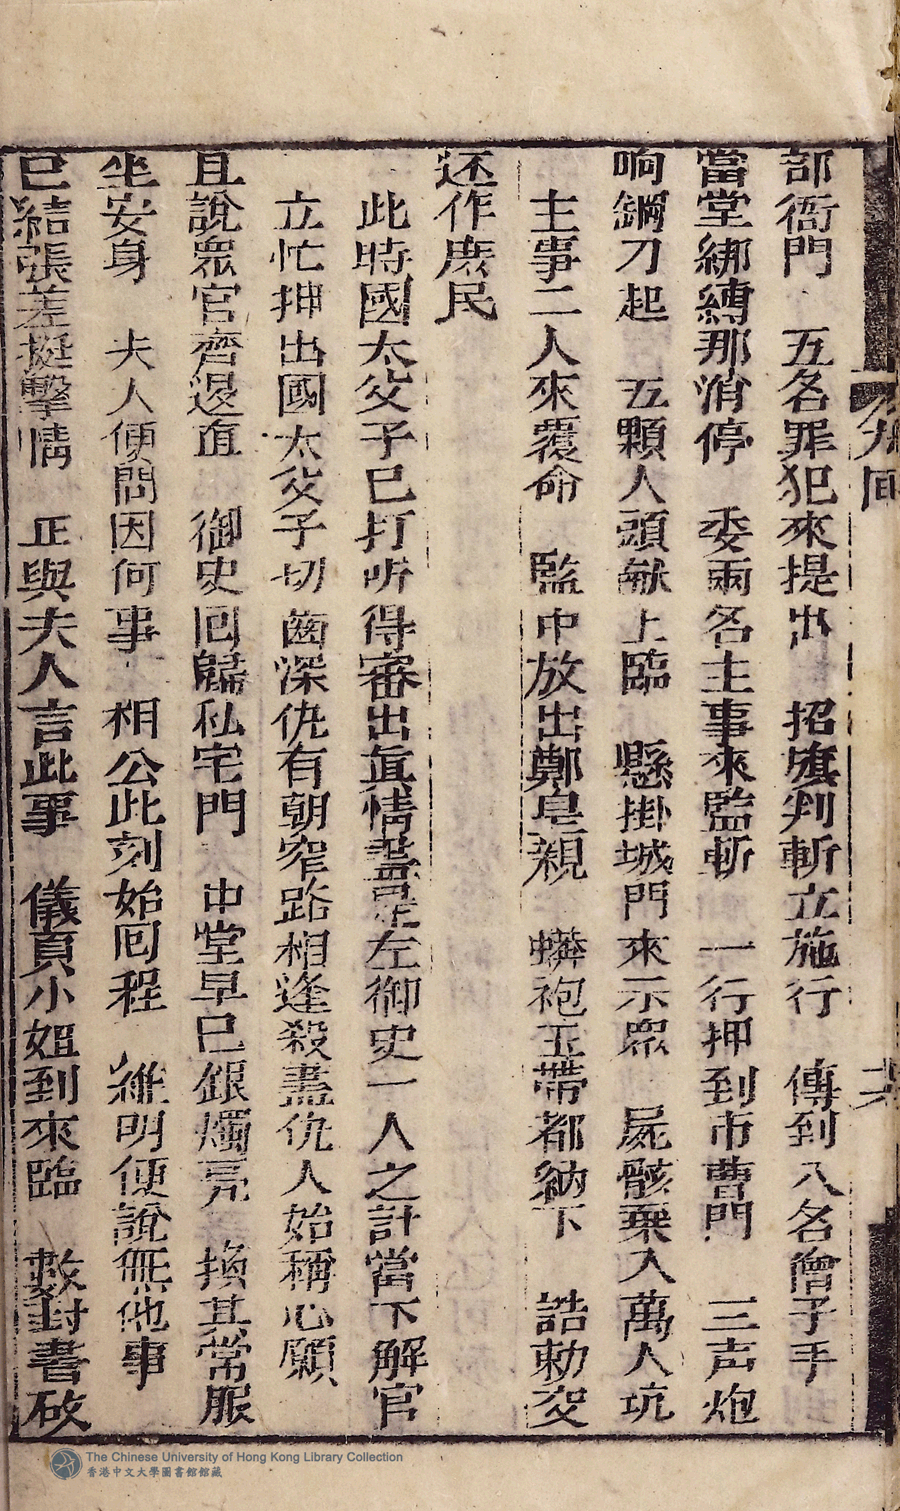 部衙門　五名罪犯來提出　招旗判斬立施行　傳到八名儈子手
當堂綁縛那消停　委両名主事來監斬　一行押到市曹門　三声炮
响鋼刀起　五顆人頭献上臨　懸掛城門來示眾　屍骸棄入萬人坑
主事二人來覆命　監中放出鄭皇親　蟒袍玉帶都納下　誥勅交
还作庶民
此時國太父子已打听得審出眞情盡是左御史一人之計當下解官
立忙押出國太父子切齒深仇有朝窄路相逢殺盡仇人始稱心願
且說眾官齊退直　御史囘歸私宅門　中堂早已銀燭亮　換其常服
坐安身　夫人便問因何事　相公此刻始囘程　維明便說無他事
已結張差挺擊情　正與夫人言此事　儀貞小姐到來臨　數封書啟
The Chinese University of Hong Kong Library Collection
香港中文大學圖書館館藏